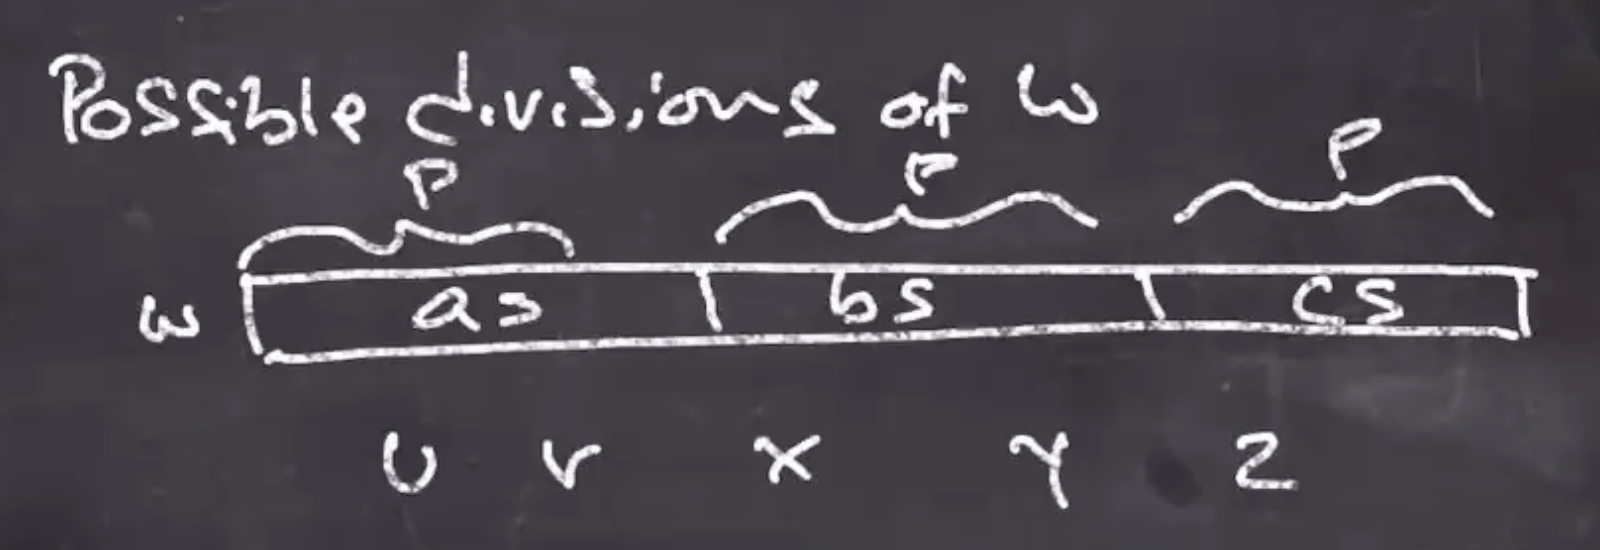 Possible divisions of w
P P P
w as bs cs
U V X Y Z